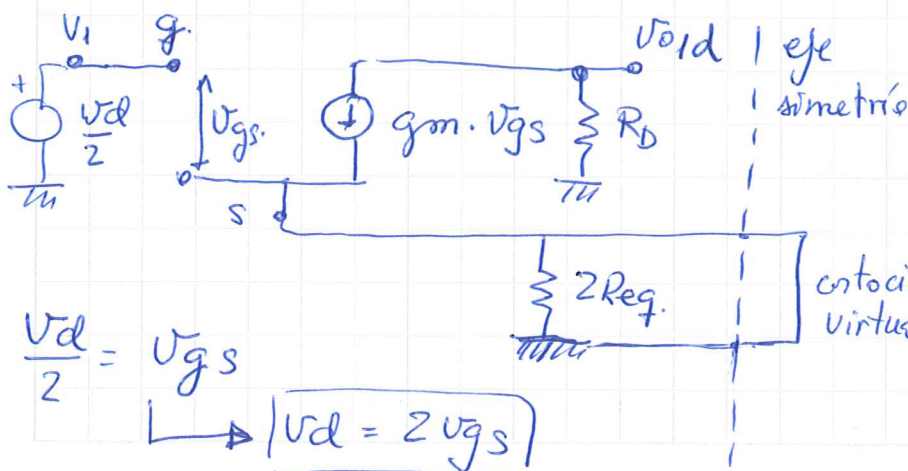 V1 g. Vo1d | eje
simetría
+ Vd/2 Vgs. gm. Vgs RD
s
2Req.
virtua
Vd/2 = Vgs
Vd = 2Vgs